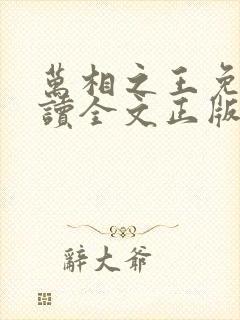 萬相之王免
讀全文正版
辭大爺